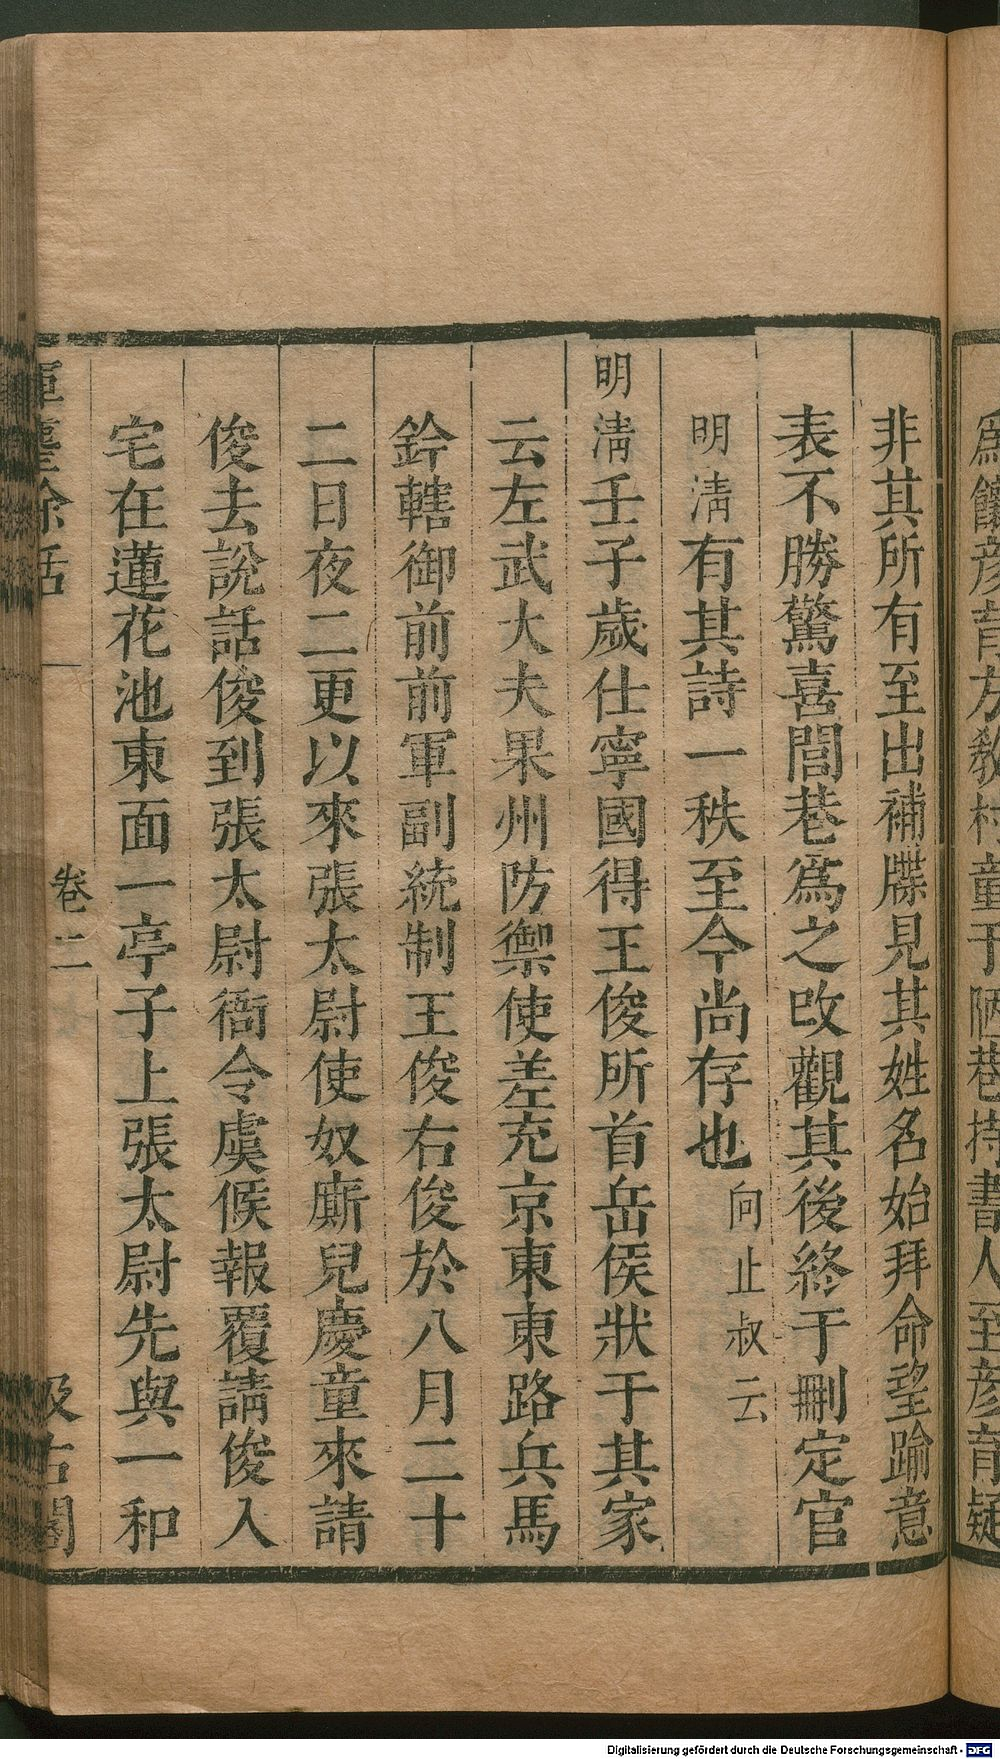 爲饋彥育方教村童于陋巷持書人至彥育疑
非其所有至出補牒見其姓名始拜命望踰意
表不勝驚喜閭巷爲之改觀其後終于刪定官
明淸有其詩一秩至今尚存也向止叔云
明淸壬子歲仕寧國得王俊所首岳侯狀于其家
云左武大夫果州防禦使差充京東東路兵馬
鈐轄御前前軍副統制王俊右俊於八月二十
二日夜二更以來張太尉使奴廝兒慶童來請
俊去說話俊到張太尉衙令虞候報覆請俊入
宅在蓮花池東面一亭子上張太尉先與一和
揮麈餘話
卷二
汲古閣
Digitalisierung gefördert durch die Deutsche Forschungsgemeinschaft - DFG